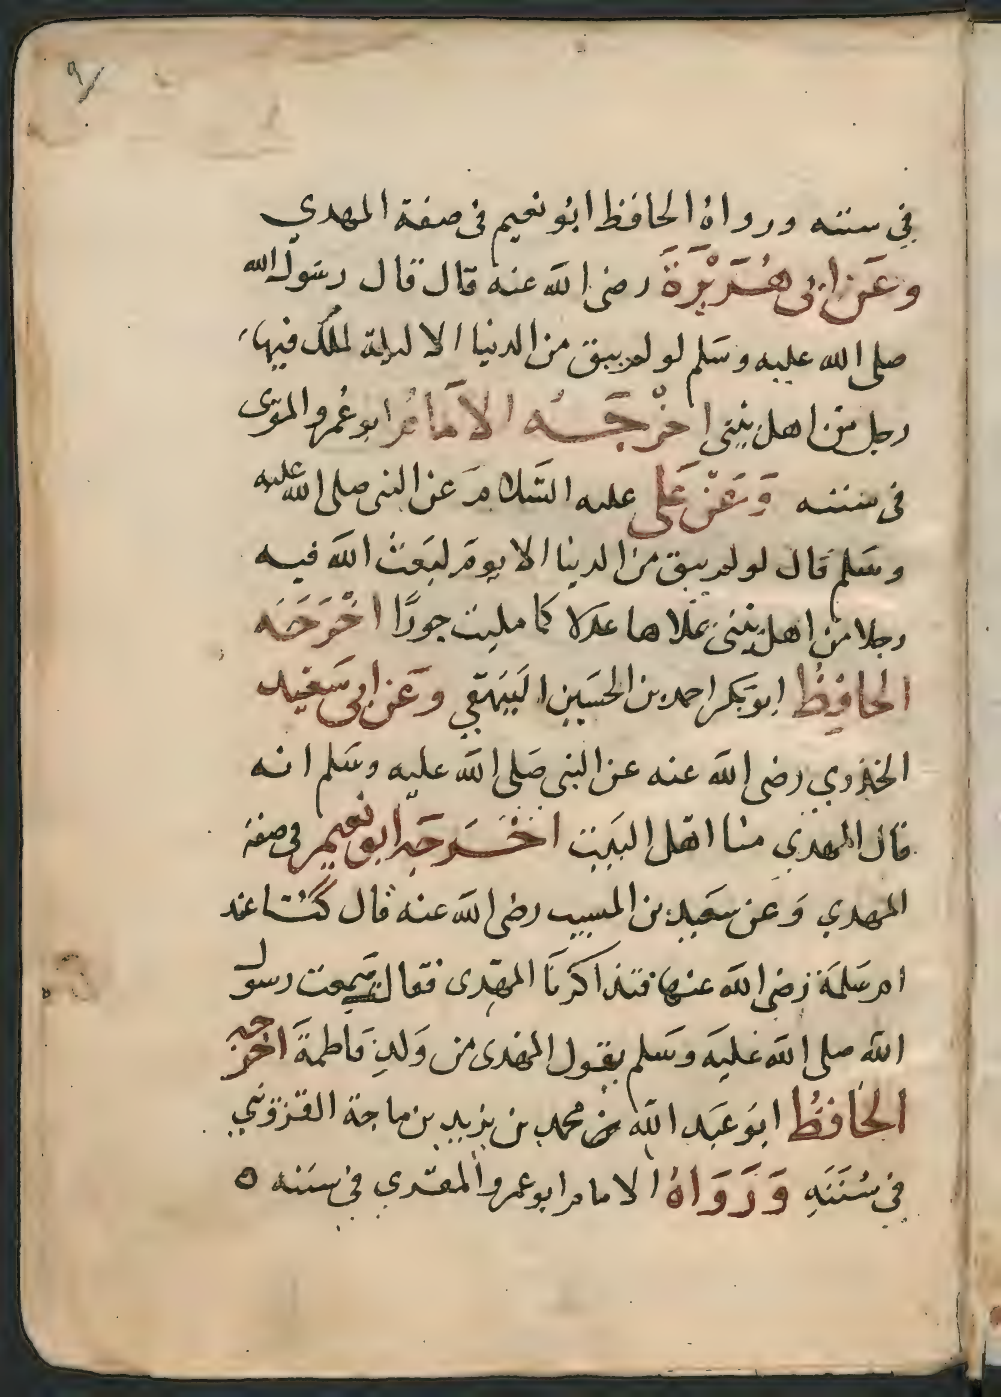 ٩
في سننه ورواهُ الحافظ ابُو نعيم فى صفة المهدي
وعَن ابى هُرَيْرَةَ رضى الله عنه قال قال رسَول الله
صلى الله عليه وسَلم لو لم يبق من الدنيا الا ليلة لملك فيها
رجل من اهل بيتى اخْرجَه الامَامُ ابو عُمرو المقرى
فى سننه وَعَنْ عَلى عليه السَّلامَ عن النبى صلى الله عليه
وسَلم قال لو لم يبق من الدينا الا يومَ لبَعثَ الله فيه
رجلا من اهل بيتى يملاها عدلا كما مليت جورًا اخْرَجَه
الحافِظُ ابو بَكر احمد بن الحسَين البَيهَقي وعَن ابى سَعْيد
الخدري رضى الله عنه عن النبى صَلى الله عليه وسَلم انه
قال المهدي منا اهَل البَيت اخْرَجَه ابو نعيم فى صفة
المهدي وَعن سعَيد بن المسيب رضى الله عنه قال كُنَّا عند
ام سَلمَة رَضى الله عنها فتذاكرنَا المهَدى فقال سَمِعت رسول
الله صلى الله عَليَه وسَلم يقول المهدى من وَلدِ فاطمةَ اخرجه
الحَافظُ ابوَ عَبَد الله بن محمد بن يزيد بن ماجة القزويني
في سُنَنَهِ وَرَوَاهُ الامام ابو عمرو المقرى في سننه ه